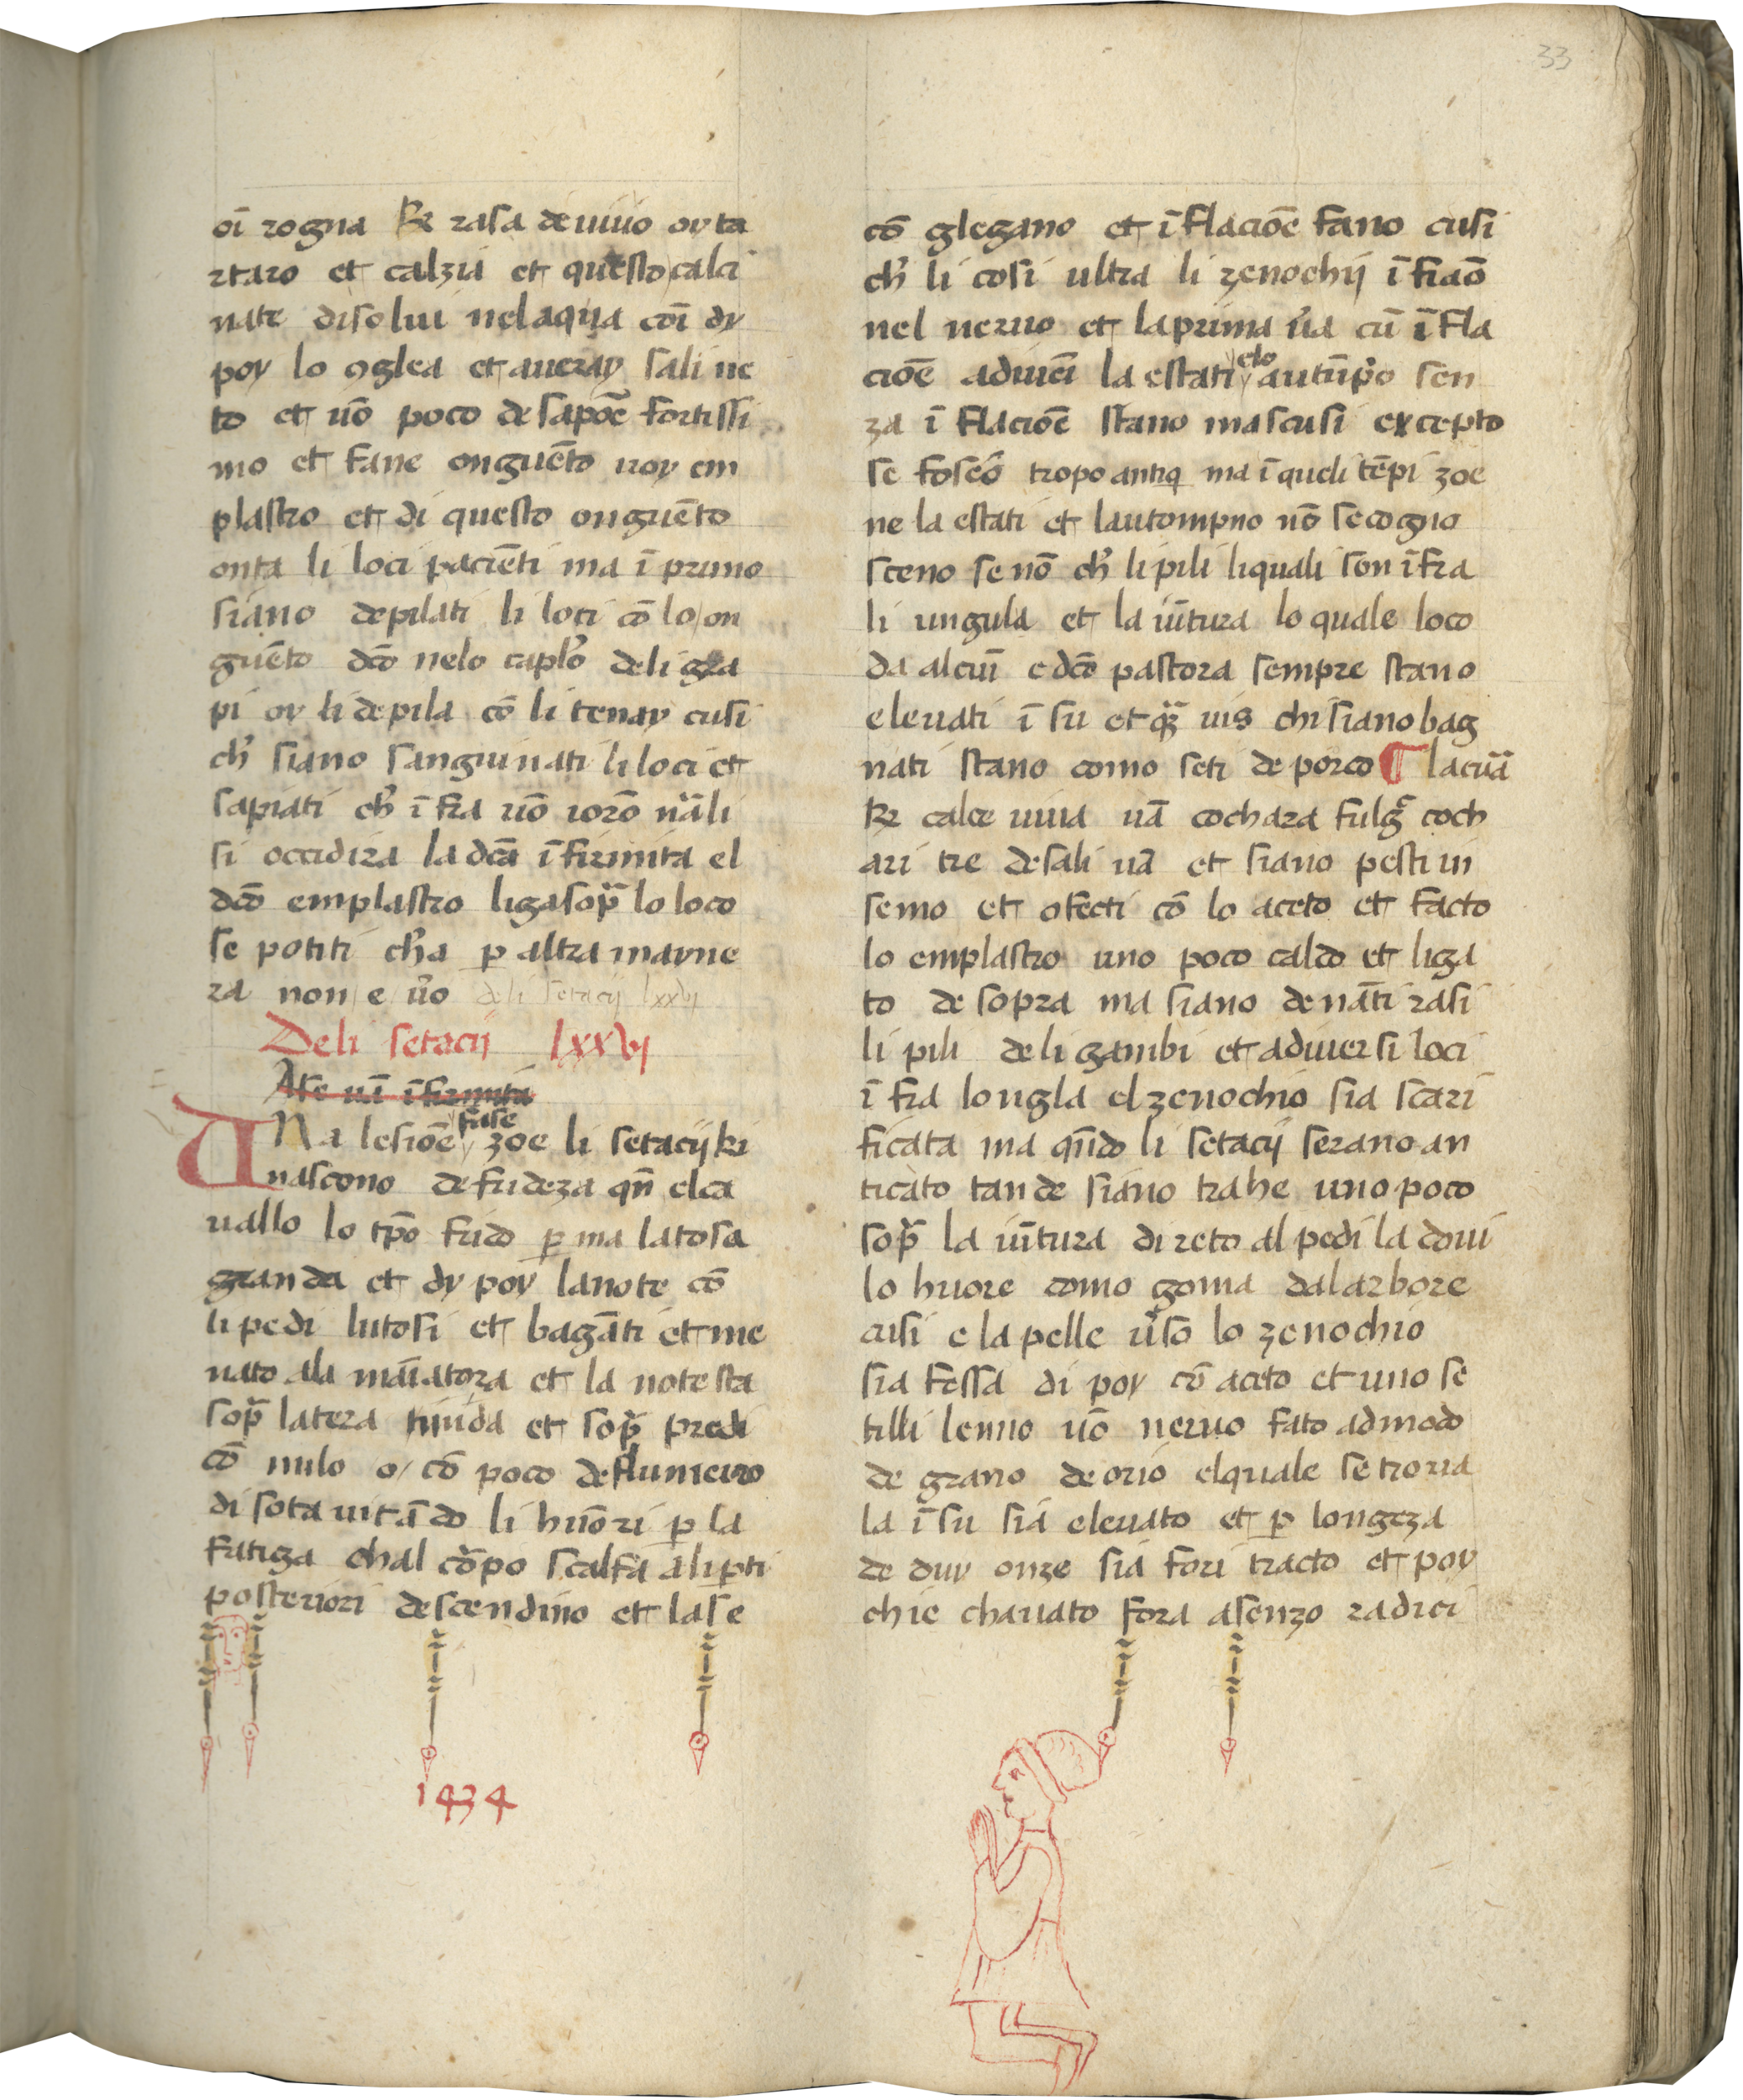 33
oī rogna ℞ rasa de uiuo oy ta
rtaro et calzia et questo calci
nate disolui nel aqua cōi dy
poy lo ꝯglea et aueray sali ne
to et uō poco de sapōe fortissi
mo et fane onguēto uoy em
plastro et di questo onguēto
onta li loci paciēti ma ī primo
siano depilati li loci cō lo on
guēto dcō nelo caplo deli gra
pi oy li depila cō li tenay cusi
ch' siano sanguinati li loci et
sapiati ch' ī fra uō iorō nāli
si occidira la dcā ī firmita el
dcō emplastro liga sop̄ lo loco
se potiti ch'a ꝑ altra mayne
ra non e ūo deli setacij lxxvj
Deli setacij lxxvj
Afe uī ī firmita
UNa lesiōe fase zoe li setacij ki
nascono de frideza qn̄ el ca
uallo lo tp̄o frido ꝑ ma la tosa
granda et dy poy la note cō
li pedi lutosi et bagāti et me
nato ala māiatora et la note sta
sop̄ la tera nuda et sop̄ predi
cō nulo o cō poco de flumeiro
di sota uitādo li huōri ꝑ la
fatiga chal cōrpo scalfa ali ꝑti
posteriori descendino et lase
1434
cō glegano et ī flaciōe fano cusi
ch' li cosi ultra li zenochij ī fiaō
nel neruo et la prima ūa cū ī fla
ciōe aduiēi la estati elo autūp̄o sen
za ī flaciōe stano mascusi excepto
se foseō tropo antiq ma ī queli tēpi zoe
ne la estati et lautompno nō se cogno
sceno se nō ch' li pili li quali son ī fra
li ungula et la iūtura lo quale loco
da alcuī e dcō pastora sempre stano
eleuati ī su et qr̄ uis chi siano bag
nati stano como seti de porco ¶ la cuā
℞ calce uiua uā cochara fulḡ coch
ari tre de sali uā et siano pesti in
semo et ꝯfecti cō lo aceto et facto
lo emplastro uno poco caldo et liga
to de sopra ma siano denāti rasi
li pili deli gambi et adiuersi loci
ī fra longla el zenochio sia scari
ficata ma qn̄do li setacij serano an
ticato tande siano trahe uno poco
sop̄ la iūtura direto al pedi la doui
lo hruore como goma dal arbore
cusi e la pelle ūso lo zenochio
sia fessa di poy cō aceto et uno se
tilli lenno uō neruo fato ad modo
de grano de orio el quale se troua
la ī su sia eleuato et ꝑ longeza
de duy onze sia fori tracto et poy
chie chauato fora asenzo radici